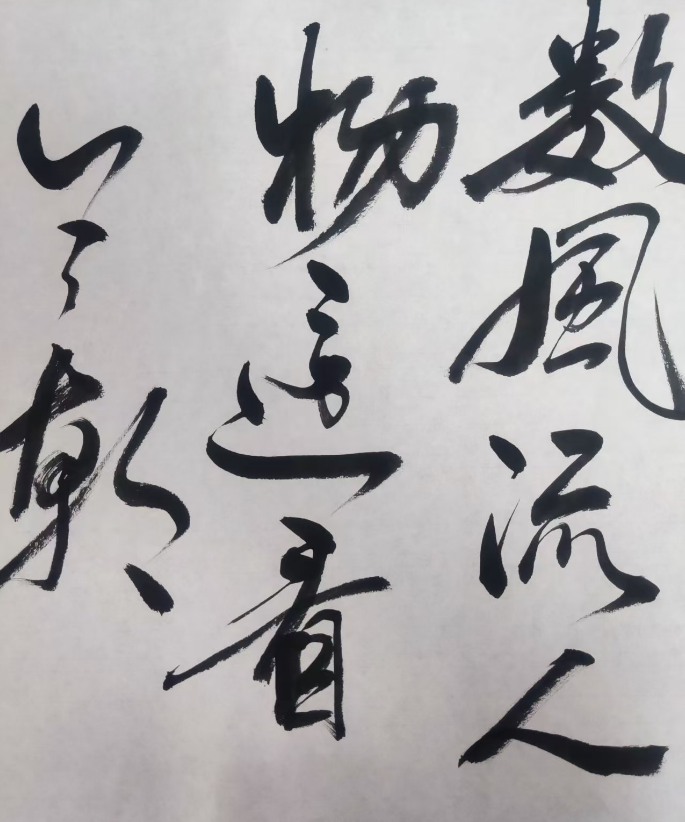 数風流人
物還看
今朝